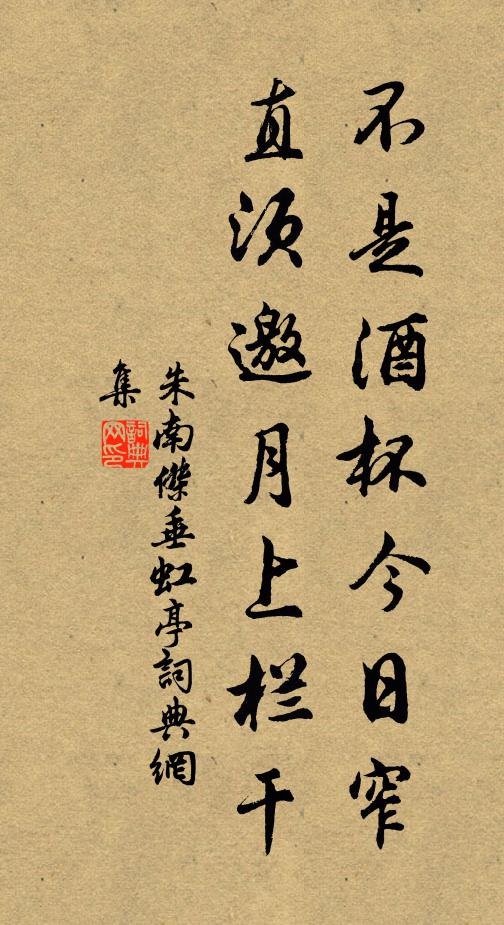 不是酒杯今日窄
直须邀月上栏干
朱南傑垂虹亭詞典網
集
詞典
网印